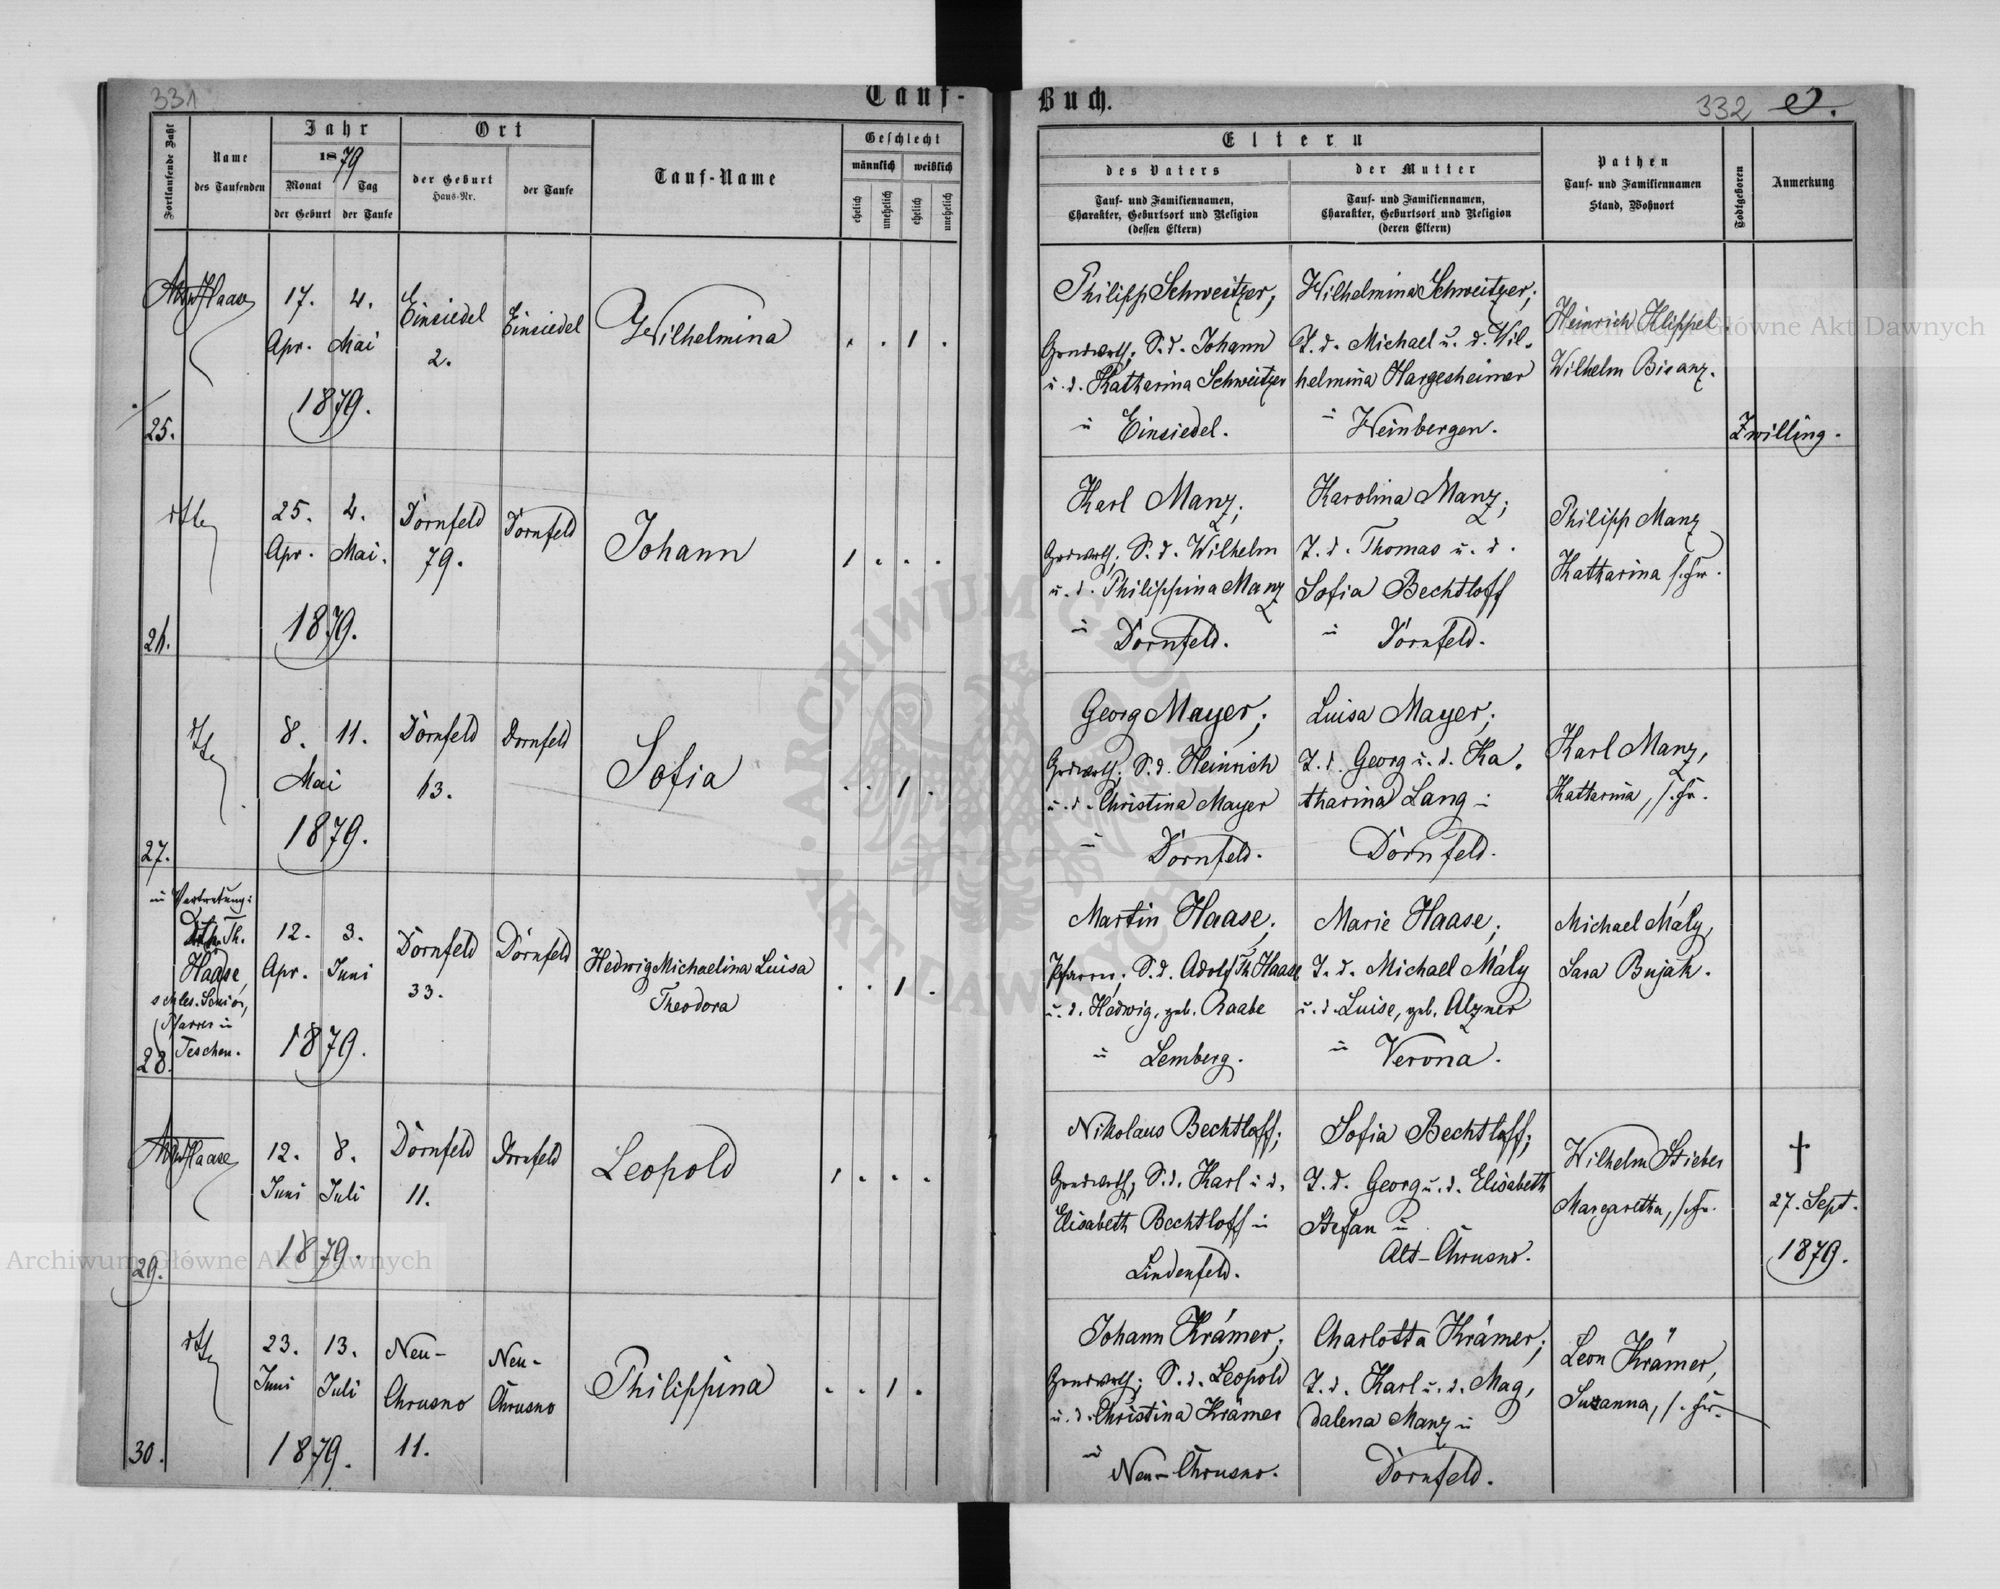 331
Tauf-
Buch.
332
Fortlaufende Zahl
Name
des Taufenden
Jahr
1879
Monat
Tag
der Geburt
der Taufe
Ort
der Geburt
Haus-Nr.
der Taufe
Tauf-Name
Geschlecht
männlich
weiblich
ehelich
unehelich
ehelich
unehelich
Eltern
des Vaters
Tauf- und Familiennamen,
Charakter, Geburtsort und Religion
(dessen Eltern)
der Mutter
Tauf- und Familiennamen,
Charakter, Geburtsort und Religion
(deren Eltern)
Pathen
Tauf- und Familiennamen
Stand, Wohnort
Todtgeboren
Anmerkung
25.
Haase
17.
Apr.
4.
Mai
1879.
Einsiedel
2.
Einsiedel
Wilhelmina
. . 1 .
Philipp Schweitzer,
Grndwrth; S. d. Johann
u. d. Katharina Schweitzer
in Einsiedel.
Wilhelmina Schweitzer;
T. d. Michael u. d. Wil-
helmina Hargesheimer
in Weinbergen.
Heinrich Klippel
Wilhelm Bisanz.
Zwilling.
26.
dtto
25.
Apr.
4.
Mai.
1879.
Dornfeld
79.
Dornfeld
Johann
1 . . .
Karl Manz;
Grdwrth; S. d. Wilhelm
u. d. Philippina Manz
in Dornfeld.
Karolina Manz;
T. d. Thomas u. d.
Sofia Bechtloff
in Dornfeld.
Philipp Manz
Katharina s. Fr.
27.
dtto
8.
11.
Mai
1879.
Dornfeld
63.
Dornfeld
Sofia
. . 1 .
Georg Mayer;
Grdwrth; S. d. Heinrich
u. d. Christina Mayer
in Dornfeld.
Luisa Mayer;
T. d. Georg u. d. Ka-
tharina Lang in
Dornfeld.
Karl Manz,
Katharina, s. Fr.
28.
in Vertretung:
Th.
Haase,
schles. Senior,
Pfarrer in
Teschen.
12.
Apr.
3.
Juni
1879.
Dornfeld
33.
Dornfeld
Hedwig Michaelina Luisa
Theodora
. . 1 .
Martin Haase;
Pfarrer; S. d. Adolf Th Haase
u. d. Hedwig, geb. Raabe
in Lemberg.
Marie Haase;
T. d. Michael Mály
u. d. Luise, geb. Alzner
in Verona.
Michael Mály,
Sara Bujak.
29.
Haase
12.
Juni
8.
Juli
1879.
Dornfeld
11.
Dornfeld
Leopold
1 . . .
Nikolaus Bechtloff;
Grndwrth; S. d. Karl u. d.
Elisabeth Bechtloff in
Lindenfeld.
Sofia Bechtloff;
T. d. Georg u. d. Elisabeth
Stefan in
Alt-Chrusno.
Wilhelm Stieber
Margaretha, s. Fr.
†
27. Sept.
1879.
30.
dtto
23.
Juni
13.
Juli
1879.
Neu-
Chrusno
11.
Neu-
Chrusno
Philippina
. . 1 .
Johann Krämer;
Grndwrth; S. d. Leopold
u. d. Christina Krämer
in Neu-Chrusno.
Charlotta Krämer;
T. d. Karl u. d. Mag-
dalena Manz in
Dornfeld.
Leon Krämer,
Suzanna, s. Fr.
Archiwum Główne Akt Dawnych
Archiwum Główne Akt Dawnych